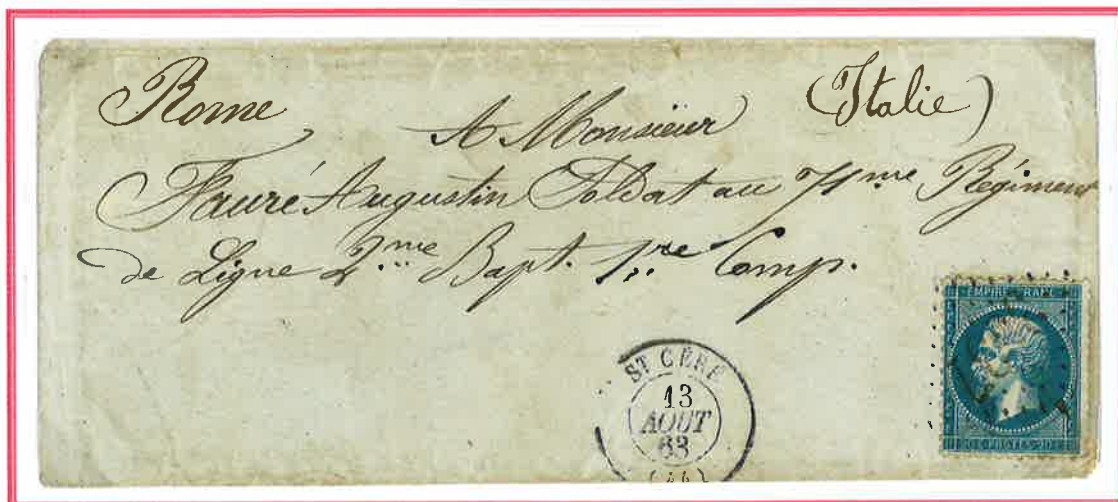 Rome (Italie)
A Monsieur
Fauré Augustin Soldat au 71me Régiment
de Ligne 2.me Bapt. 1re Comp.
ST CÉRÉ
13
AOUT
63
(44)
EMPIRE FRANC
20 C POSTES 20 C